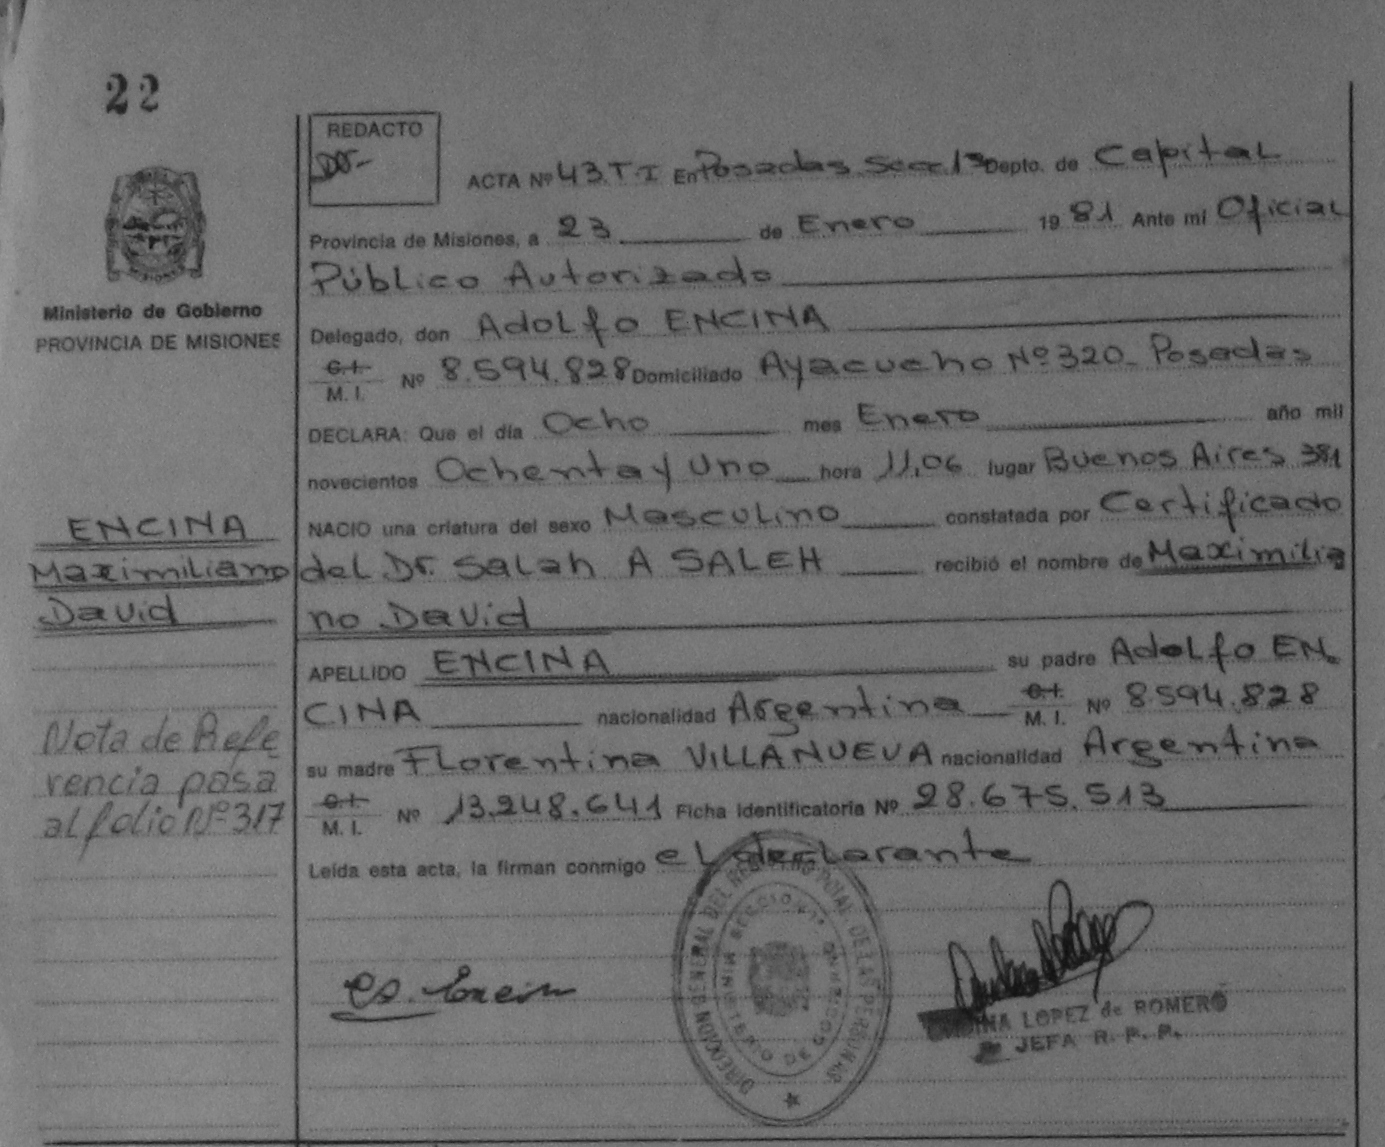 22
REDACTO
ACTA Nº 43.T.I En Posadas Secc.1ª Depto. de Capital
Provincia de Misiones, a 23 de Enero 19 81 Ante mí Oficial
Público Autorizado
Delegado, don Adolfo ENCINA
C.I. M. I. Nº 8.594.828 Domiciliado Ayacucho Nº 320_ Posadas
DECLARA: Que el día Ocho mes Enero año mil
novecientos Ochenta y Uno hora 11,06 lugar Buenos Aires 381
NACIO una criatura del sexo Masculino constatada por Certificado
del Dr. Salah A SALEH recibió el nombre de Maximilia
no David
APELLIDO ENCINA su padre Adolfo EN_
CINA nacionalidad Argentina C.I. M. I. Nº 8.594.828
su madre Florentina VILLANUEVA nacionalidad Argentina
C.I. M. I. Nº 13.248.641 Ficha Identificatoria Nº 28.675.513
Leída esta acta, la firman conmigo el declarante
Ministerio de Gobierno
PROVINCIA DE MISIONES
ENCINA
Maximiliano
David
Nota de Refe
rencia pasa
al folio Nº 317
DIRECCION GENERAL DEL REGISTRO PCIAL DE LAS PERSONAS
MINISTERIO DE GOBIERNO
SECCION 1ª
LOPEZ de ROMERO
JEFA R. P. P.